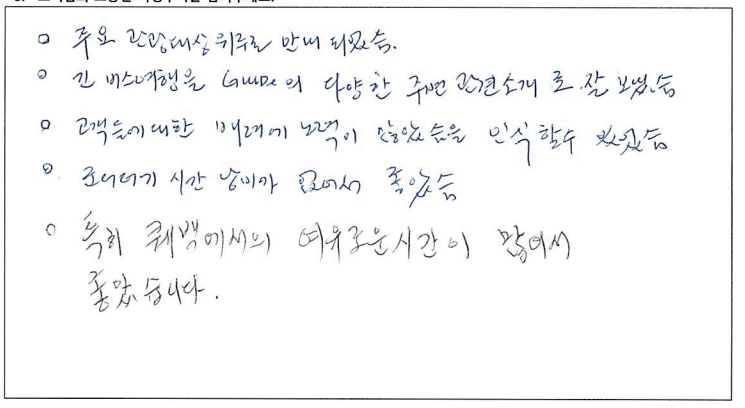 o 주요 관광대상위주로 안내 되었음.
o 긴 버스여행을 Guide의 다양한 주변 관련소개로 잘 보냈음
o 고객들에대한 배려에 노력이 많았음을 인식할수 있었음
o. 시간 낭비가 없어서 좋았음
o 특히 퀘벡에서의 여유로운시간이 많아서
좋았습니다.